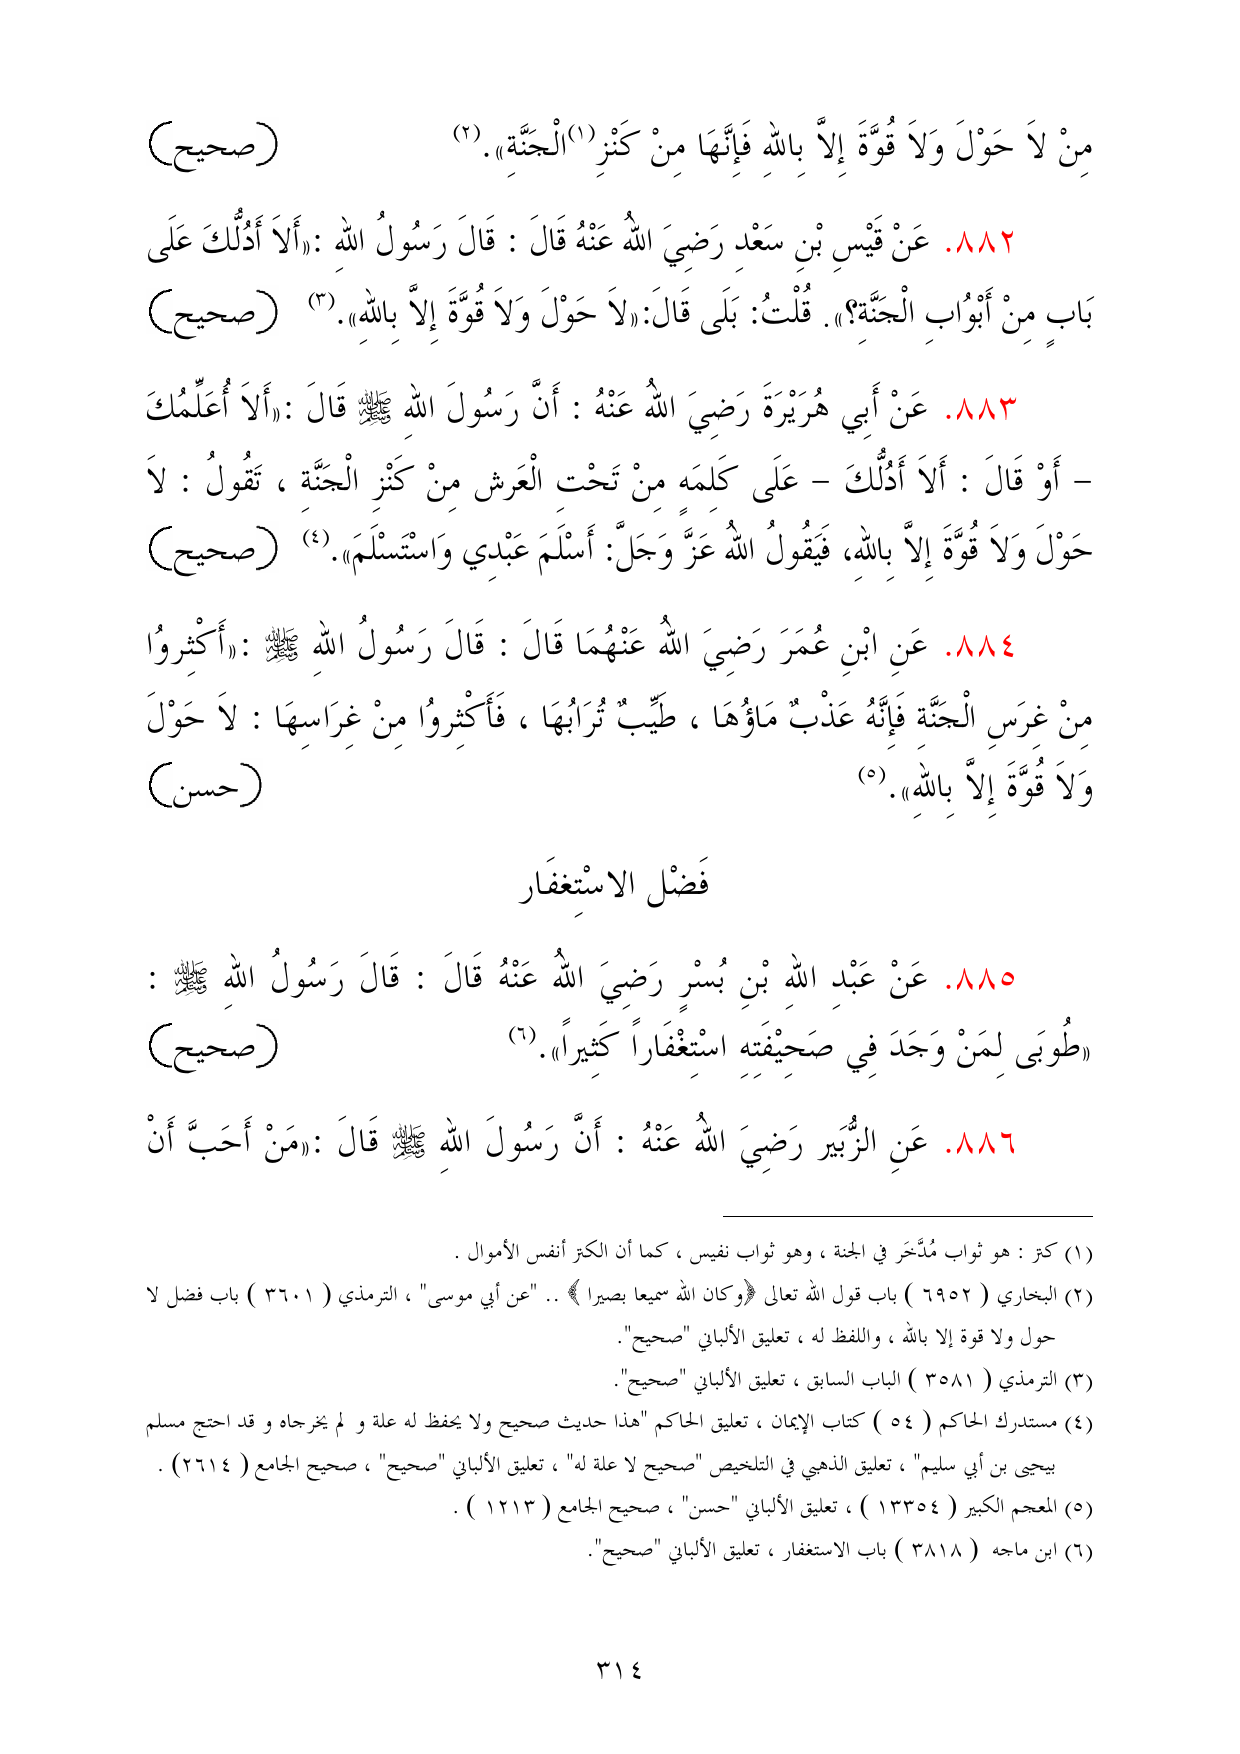 مِنْ لاَ حَوْلَ وَلاَ قُوَّةَ إِلاَّ بِاللهِ فَإِنَّهَا مِنْ كَنْزِ(١)الْجَنَّةِ».(٢) (صحيح)
٨٨٢. عَنْ قَيْسِ بْنِ سَعْدِ رَضِيَ اللهُ عَنْهُ قَالَ : قَالَ رَسُولُ اللهِ :«أَلاَ أَدُلُّكَ عَلَى
بَابٍ مِنْ أَبْوُابِ الْجَنَّةِ؟». قُلْتُ: بَلَى قَالَ:«لاَ حَوْلَ وَلاَ قُوَّةَ إِلاَّ بِاللهِ».(٣) (صحيح)
٨٨٣. عَنْ أَبِي هُرَيْرَةَ رَضِيَ اللهُ عَنْهُ : أَنَّ رَسُولَ اللهِ ﷺ قَالَ :«أَلاَ أُعَلِّمُكَ
– أَوْ قَالَ : أَلاَ أَدُلُّكَ – عَلَى كَلِمَهٍ مِنْ تَحْتِ الْعَرش مِنْ كَنْزِ الْجَنَّةِ ، تَقُولُ : لاَ
حَوْلَ وَلاَ قُوَّةَ إِلاَّ بِاللهِ، فَيَقُولُ اللهُ عَزَّ وَجَلَّ: أَسْلَمَ عَبْدِي وَاسْتَسْلَمَ».(٤) (صحيح)
٨٨٤. عَنِ ابْنِ عُمَرَ رَضِيَ اللهُ عَنْهُمَا قَالَ : قَالَ رَسُولُ اللهِ ﷺ :«أَكْثِروُا
مِنْ غِرَسِ الْجَنَّةِ فَإِنَّهُ عَذْبٌ مَاؤُهَا ، طَيِّبٌ تُرَابُهَا ، فَأَكْثِروُا مِنْ غِرَاسِهَا : لاَ حَوْلَ
وَلاَ قُوَّةَ إِلاَّ بِاللهِ».(٥) (حسن)
فَضْل الاسْتِغفَار
٨٨٥. عَنْ عَبْدِ اللهِ بْنِ بُسْرٍ رَضِيَ اللهُ عَنْهُ قَالَ : قَالَ رَسُولُ اللهِ ﷺ :
«طُوبَى لِمَنْ وَجَدَ فِي صَحِيْفَتِهِ اسْتِغْفَاراً كَثِيراً».(٦) (صحيح)
٨٨٦. عَنِ الزُّبَير رَضِيَ اللهُ عَنْهُ : أَنَّ رَسُولَ اللهِ ﷺ قَالَ :«مَنْ أَحَبَّ أَنْ
(١) كنز : هو ثواب مُدَّخَر في الجنة ، وهو ثواب نفيس ، كما أن الكنز أنفس الأموال .
(٢) البخاري ( ٦٩٥٢ ) باب قول الله تعالى ﴿وكان الله سميعا بصيرا ﴾ .. "عن أبي موسى" ، الترمذي ( ٣٦٠١ ) باب فضل لا
حول ولا قوة إلا بالله ، واللفظ له ، تعليق الألباني "صحيح".
(٣) الترمذي ( ٣٥٨١ ) الباب السابق ، تعليق الألباني "صحيح".
(٤) مستدرك الحاكم ( ٥٤ ) كتاب الإيمان ، تعليق الحاكم "هذا حديث صحيح ولا يحفظ له علة و لم يخرجاه و قد احتج مسلم
بيحيى بن أبي سليم" ، تعليق الذهبي في التلخيص "صحيح لا علة له" ، تعليق الألباني "صحيح" ، صحيح الجامع ( ٢٦١٤) .
(٥) المعجم الكبير ( ١٣٣٥٤ ) ، تعليق الألباني "حسن" ، صحيح الجامع ( ١٢١٣ ) .
(٦) ابن ماجه ( ٣٨١٨ ) باب الاستغفار ، تعليق الألباني "صحيح".
٣١٤